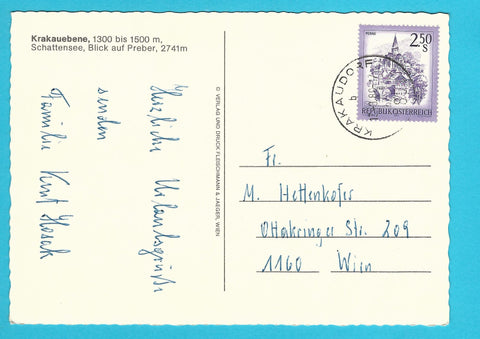 Krakauebene, 1300 bis 1500 m,
Schattensee, Blick auf Preber, 2741m
Herzliche Urlaubsgrüße
senden
Familie Kurt
© VERLAG UND DRUCK FLEISCHMANN & JAEGER, WIEN
KRAKAUDORF
2.50
S
REPUBLIK ÖSTERREICH
Fr.
M. Hettenkofer
Ottakringer Str. 209
1160 Wien